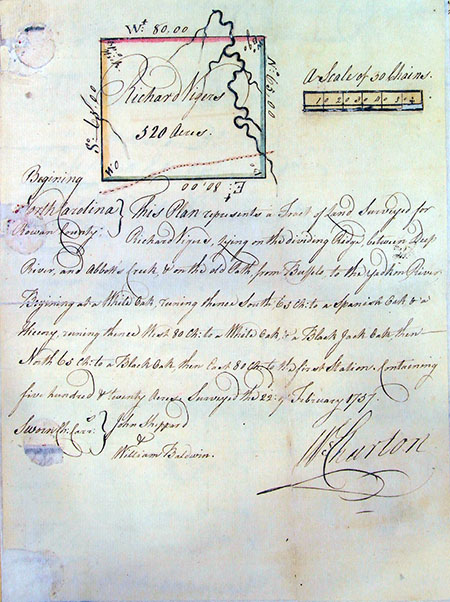 Wt. 80.00
No. 65.00
A Scale of 50 Chains.
10 20 30 40 50
Richard Vigers
520 Acres.
So. 65.00
W.O
Et. 80.00
Begining
North Carolina } This Plan represents a Tract of Land Surveyed for
Rowan County. Richard Vigers, lying on the dividing Ridge, between Deep
River, and Abbotts Creek, & on the old Path, from Buffelo to the Yadkin River
Begining at a White Oak, runing thence South 65 Ch: to a Spanish Oak & a
Hicory, runing thence West 80 Ch: to a White Oak & a Black Jack Oak then
North 65 Ch: to a Black Oak then East 80 Ch: to the first Station. Containing
five hundred & twenty Acres Surveyed the 22d. of February 1757.
Sworn Ch: Carrs. } John Sheppard
&
William Baldwin.
Wm. Churton